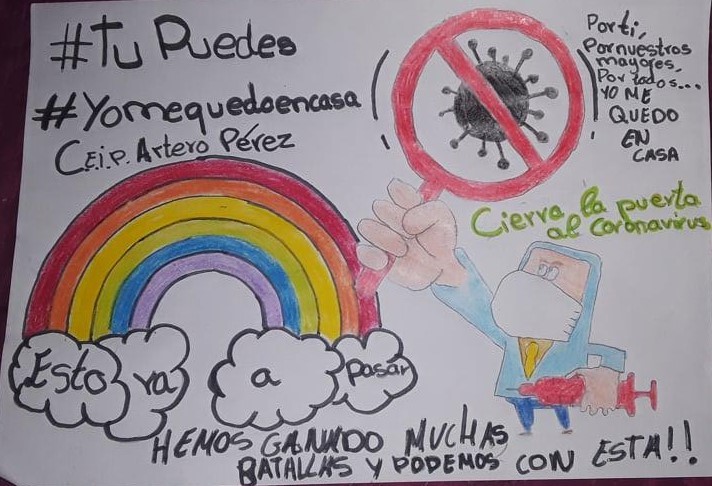 #Tu Puedes
#Yomequedoencasa
C.E.i.P. Artero Pérez
Por ti,
Por nuestros
mayores,
Por todos...
YO ME
QUEDO
EN
CASA
Cierra la puerta
al Coronavirus
Esto va a pasar
HEMOS GANADO MUCHAS
BATALLAS Y PODEMOS CON ESTA!!